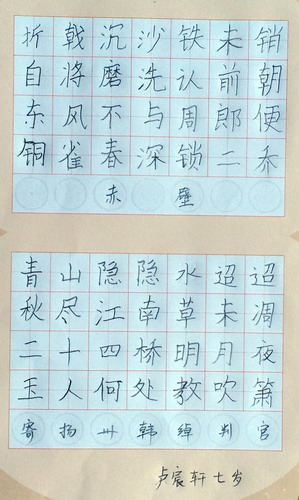 折戟沉沙铁未销
自将磨洗认前朝
东风不与周郎便
铜雀春深锁二乔
赤壁
青山隐隐水迢迢
秋尽江南草未凋
二十四桥明月夜
玉人何处教吹箫
寄扬州韩绰判官
卢宸轩 七岁